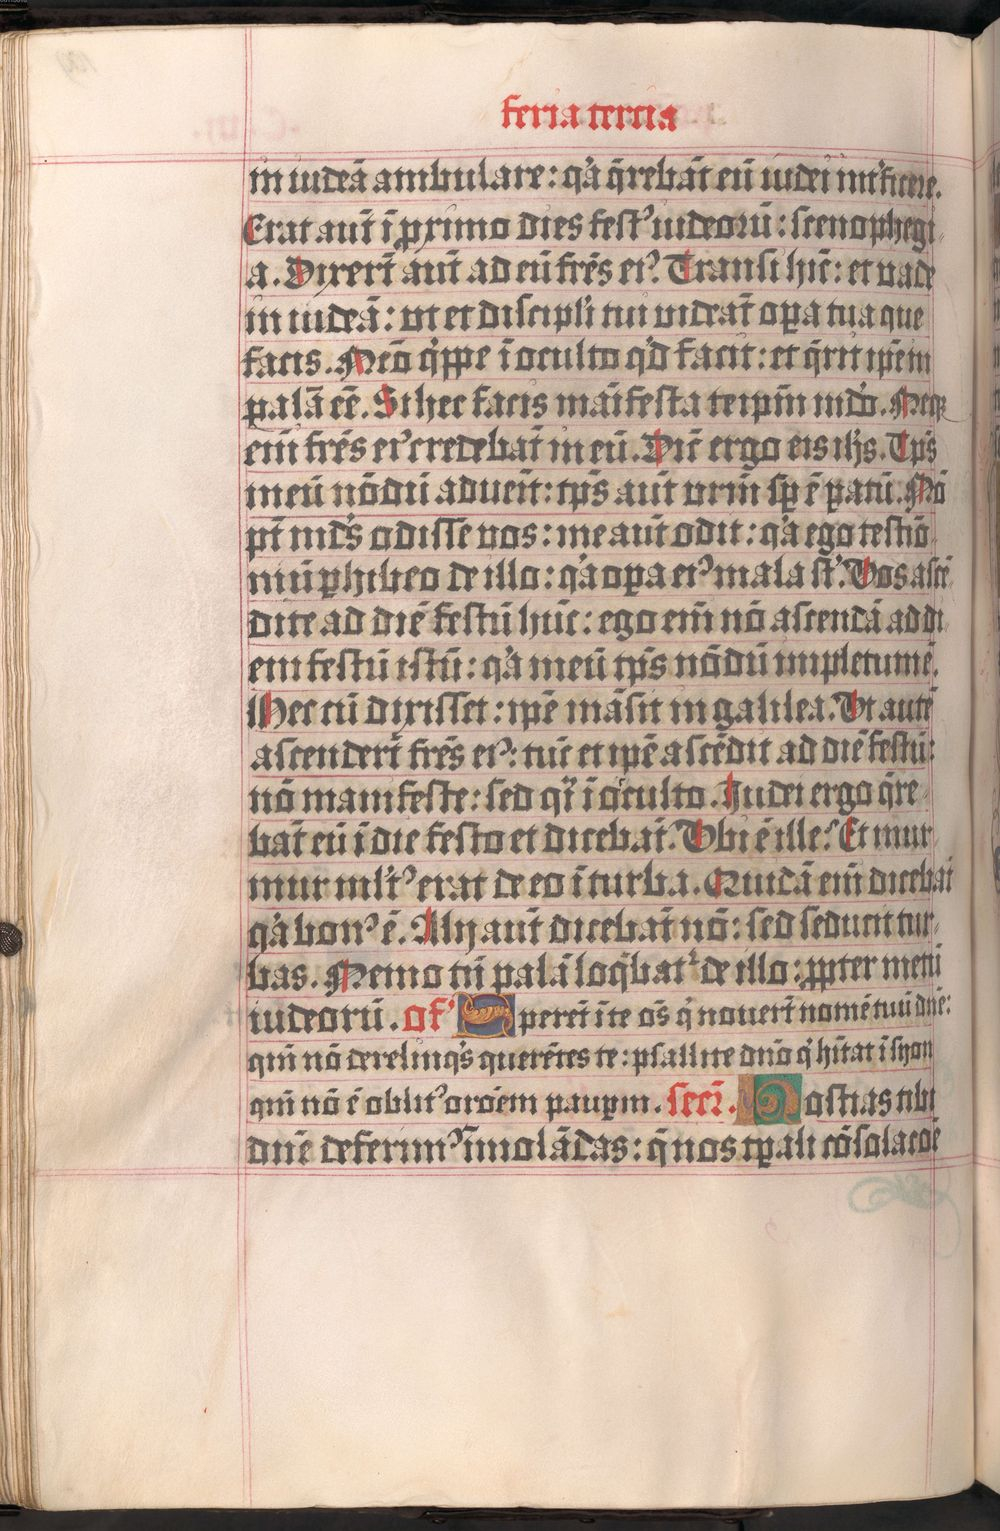 feria tercia
in iudeā ambulare: q̓a q̄rebāt eū iudei int̓ficere.
Erat aut̄ ī ꝓximo dies festꝰ iudeorū: scenophegi-
a. Dixert̄ aut̄ ad eū fr̄es eiꝰ. Transi hīc: et vade
in iudeā: vt et discipl̓i tui videāt oꝑa tua que
facis. Nēo q̓ppe ī oculto q̓d facit: et q̄rit ip̄e in
palā eē. Si hec facis māifesta teip̄m mūdo. Neqꝫ
eīm fr̄es eiꝰ credebāt in eū. Dic̄ ergo eis ih̄s. Tp̄s
meū nōdū adueīt: tp̄s aut̄ vrm̄ sp̄ ē ꝑatū. Nō
pt̄ mūdꝰ odisse vos: me aut̄ odit: q̓a ego testiō-
niū ꝑhibeo de illo: q̓a oꝑa eiꝰ mala sūt. Vos ascē-
dite ad diē festū hūc: ego eīm nō ascendā ad di-
em festū istū: q̓a meū tp̄s nōdū impletum ē.
Hec cū dixisset: ip̄e māsit in galilea. Vt autē
ascendert̄ fr̄es eiꝰ: tūc et ip̄e ascēdit ad diē festū:
nō manifeste: sed q̓i ī oculto. Iudei ergo q̄re-
bāt eū ī die festo et dicebāt. Vbi ē ille? Et mur-
mur ml̓tꝰ erat de eo ī turba. Quidā eīm dicebāt
q̓a bonꝰ ē. Alij aut̄ dicebāt nō: sed seducit tur-
bas. Nemo tn̄ palā loq̄batᷣ de illo: ꝓpter metū
iudeorū. of̓ Speret̄ ī te oēs q̓ nouert̄ nomē tuū dn̄e:
qm̄ nō derelinq̓s querētes te: psallite dn̄o q̓ hītat ī syon
qm̄ nō ē oblitꝰ orōem pauꝑum. secr̄. Hostias tibi
dn̄e deferimꝰ īmolādas: q̄ nos tꝑali cōsolacōē